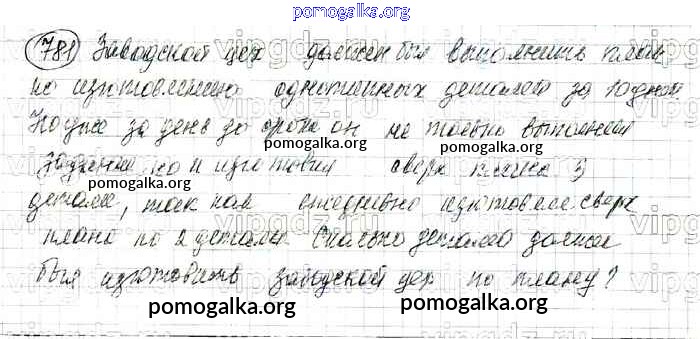 pomogalka.org
781 Заводской цех должен был выполнить план
по изготовлению однотипных деталей за 10 дней.
Но уже за день до срока он не только выполнил
задание, но и изготовил сверх плана 3
pomogalka.org pomogalka.org
детали, так как ежедневно изготовлял сверх
плана по 2 детали. Сколько деталей должен
был изготовить заводской цех по плану?
pomogalka.org pomogalka.org
vipgdz.ru